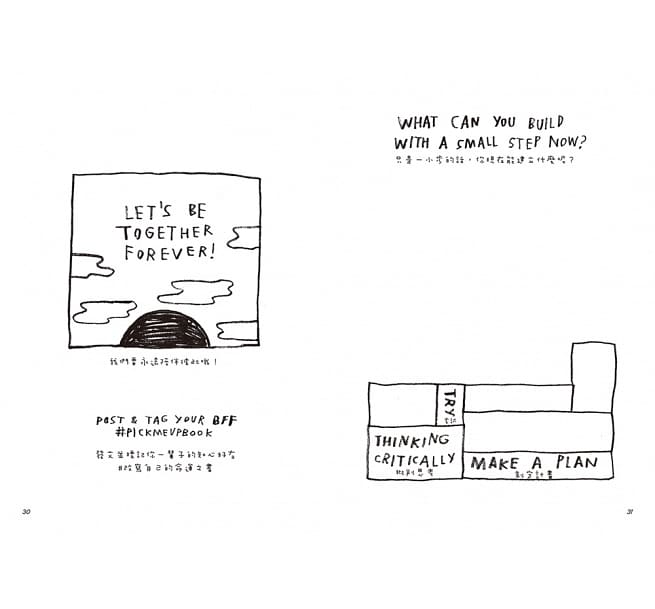 LET'S BE
TOGETHER
FOREVER!
我們要永遠陪伴彼此哦！
POST & TAG YOUR BFF
#PICKMEUPBOOK
發文並標記你一輩子的知心好友
#改寫自己的命運之書
30
WHAT CAN YOU BUILD
WITH A SMALL STEP NOW?
只是一小步的話，你現在能建立什麼呢？
TRY
嘗試
THINKING
CRITICALLY
批判思考
MAKE A PLAN
制定計畫
31